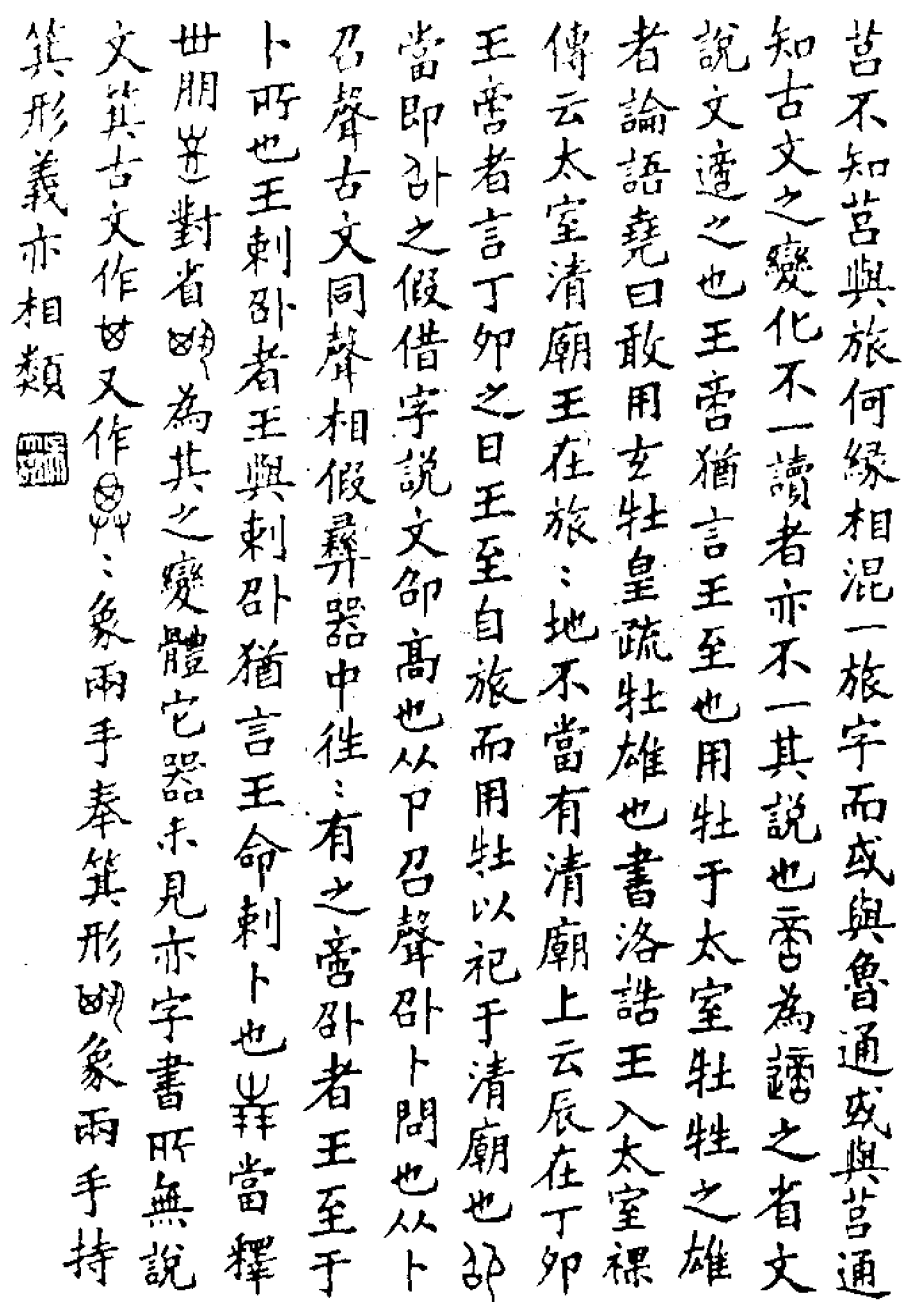 莒不知莒與旅何緣相混一旅字而或與魯通或與莒通
知古文之變化不一讀者亦不一其說也啻為之省文
說文適之也王啻猶言王至也用牡于太室牡牲之雄
者論語堯曰敢用玄牡皇疏牡雄也書洛誥王入太室祼
傳云太室清廟王在旅〻地不當有清廟上云辰在丁卯
王啻者言丁卯之日王至自旅而用牡以祀于清廟也
當即卲之假借字說文卲高也从卩召聲卧卜問也从卜
召聲古文同聲相假彝器中徃〻有之啻卧者王至于
卜所也王剌卧者王與剌卧猶言王命剌卜也當釋
世朋對省為其之變體它器未見亦字書所無說
文箕古文作又作〻象兩手奉箕形象兩手持
箕形義亦相類